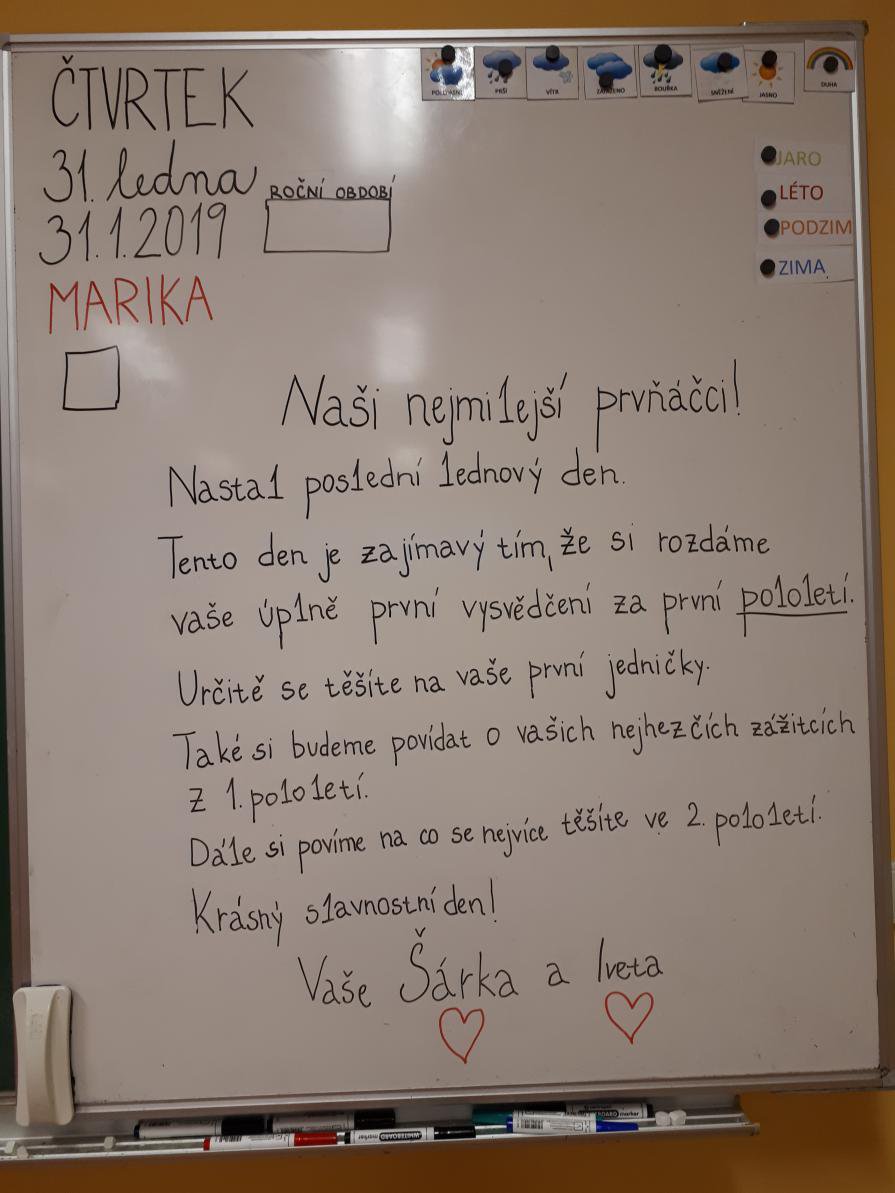 ČTVRTEK
31. ledna
31.1.2019
ROČNÍ OBDOBÍ
MARIKA
PRŠÍ
VÍTR
ZATAŽENO
BOUŘKA
SNĚŽENÍ
JASNO
DUHA
JARO
LÉTO
PODZIM
ZIMA
Naši nejmilejší prvňáčci!
Nastal poslední lednový den.
Tento den je zajímavý tím, že si rozdáme
vaše úplně první vysvědčení za první pololetí.
Určitě se těšíte na vaše první jedničky.
Také si budeme povídat o vašich nejhezčích zážitcích
z 1. pololetí.
Dále si povíme na co se nejvíce těšíte ve 2. pololetí.
Krásný slavnostní den!
Vaše Šárka a Iveta
WHITEBOARD marker
marker